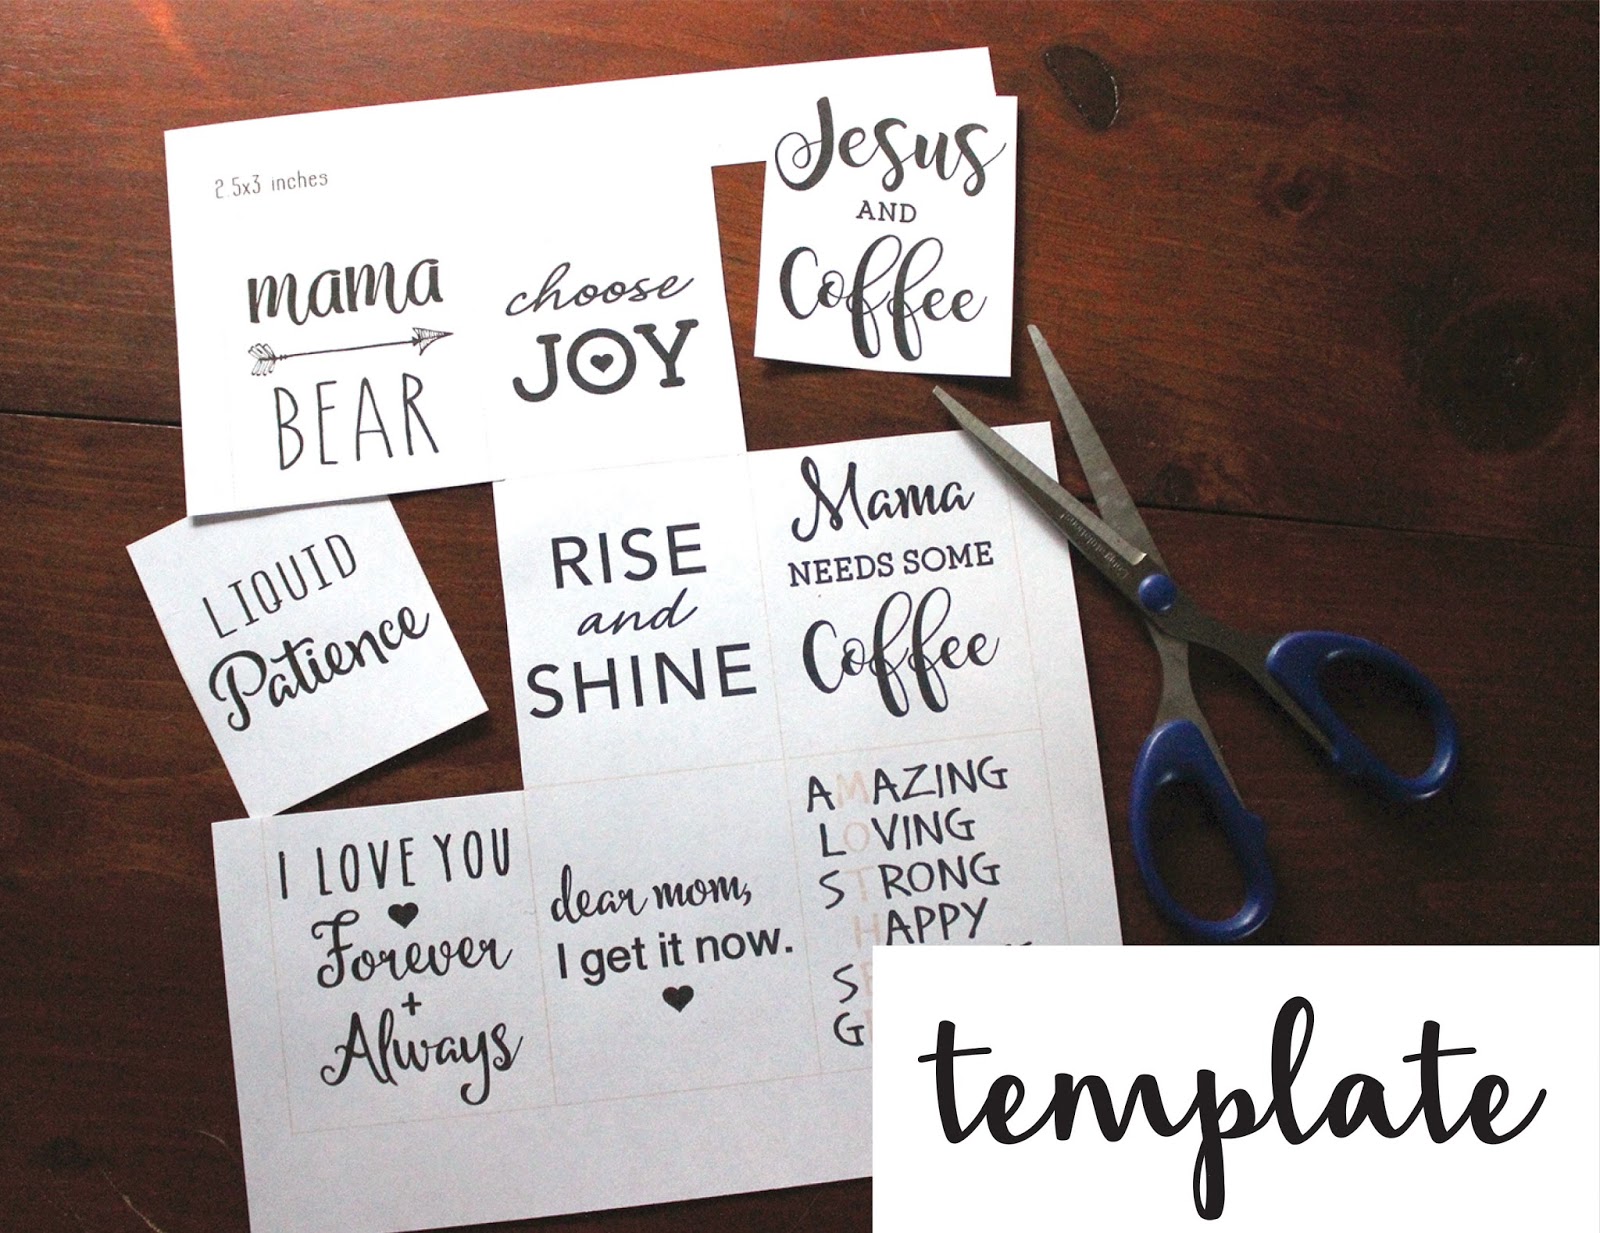 2.5x3 inches
mama
BEAR
choose
JOY
Jesus
AND
Coffee
LIQUID
Patience
RISE
and
SHINE
Mama
NEEDS SOME
Coffee
I LOVE YOU
Forever
+
Always
dear mom,
I get it now.
AMAZING
LOVING
STRONG
HAPPY
SE
G
template